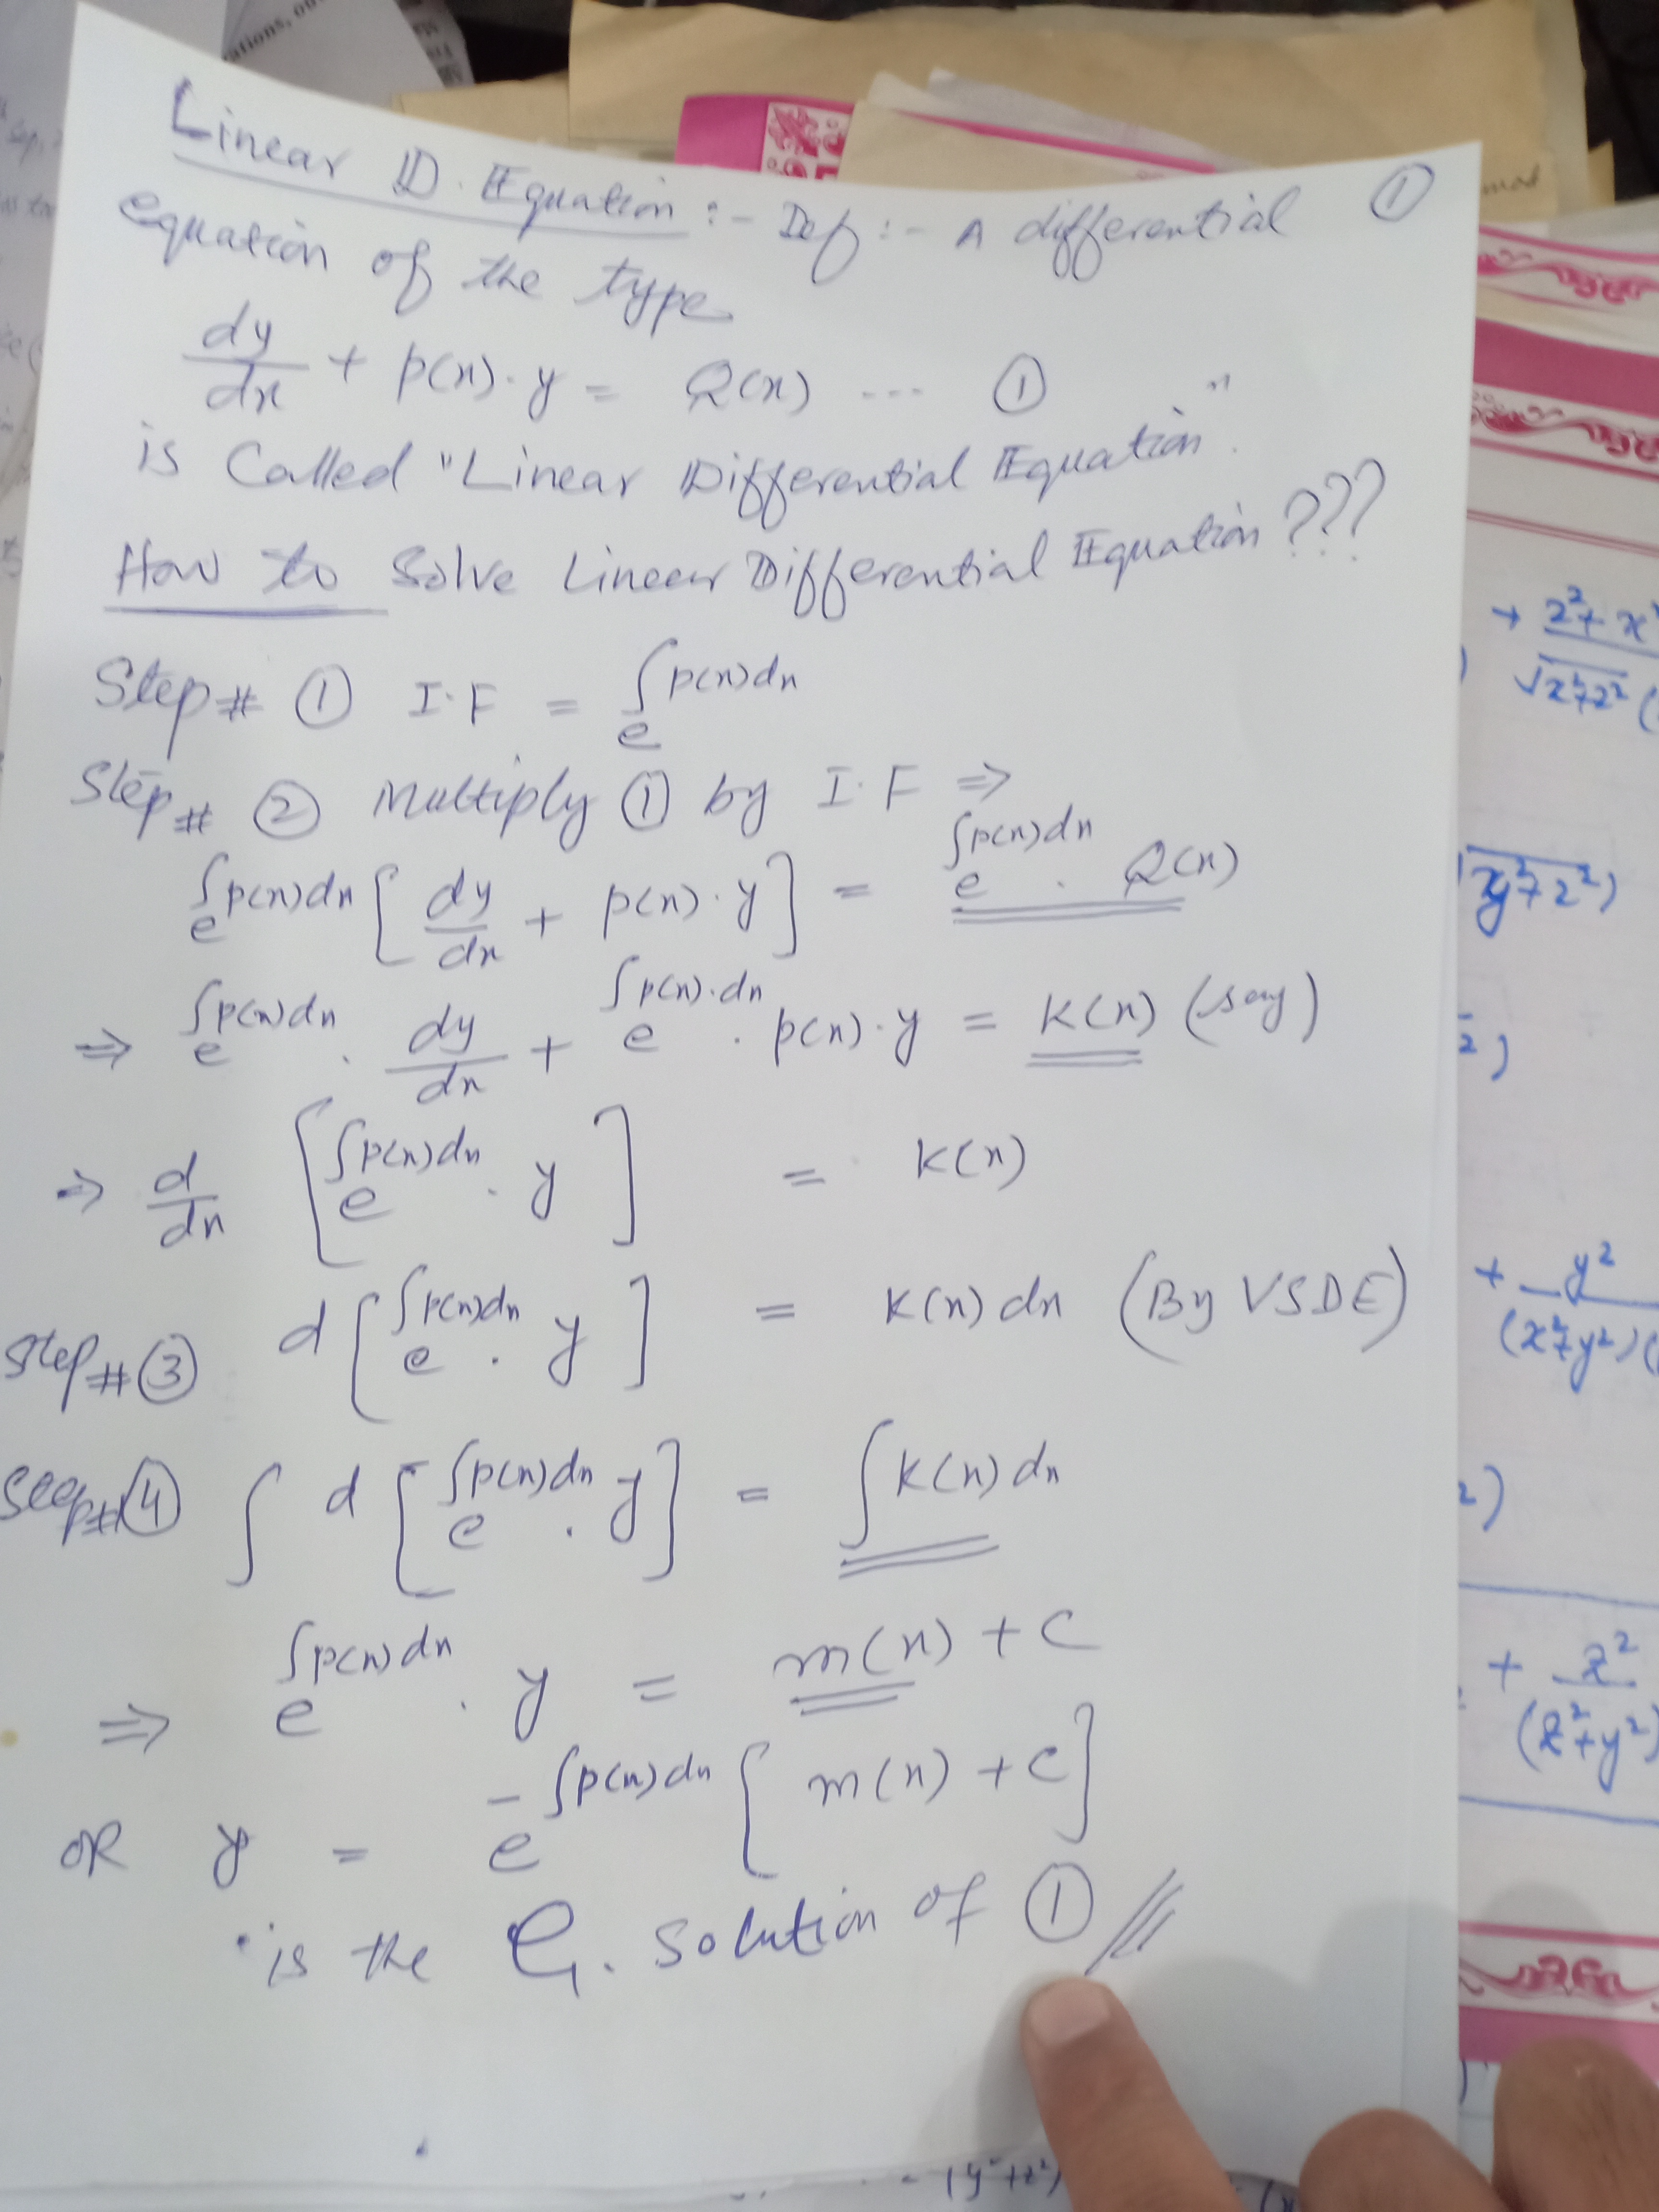 Linear D. Equation :- Def :- A differential ①
equation of the type
dy/dx + p(x)·y = Q(x) --- ①
is Called "Linear Differential Equation".
How to Solve Linear Differential Equation ???
Step# ① I·F = e^∫p(x)dx
Step# ② Multiply ① by I·F ⇒
e^∫p(x)dx [dy/dx + p(x)·y] = e^∫p(x)dx · Q(x)
⇒ e^∫p(x)dx · dy/dx + e^∫p(x)·dx · p(x)·y = K(x) (say)
⇒ d/dx [e^∫p(x)dx · y] = K(x)
Step# ③ d[e^∫p(x)dx · y] = K(x) dx (By VSDE)
Step# ④ ∫ d[e^∫p(x)dx · y] = ∫K(x) dx
⇒ e^∫p(x)dx · y = m(x) + C
OR y = e^-∫p(x)dx [m(x) + C]
is the G. Solution of ①
+ z²+x²
√x²+z² (
√y²+z²)
2)
+ y²
(x²+y²)(
2)
+ z²
(z²+y²)
(y²+z²)